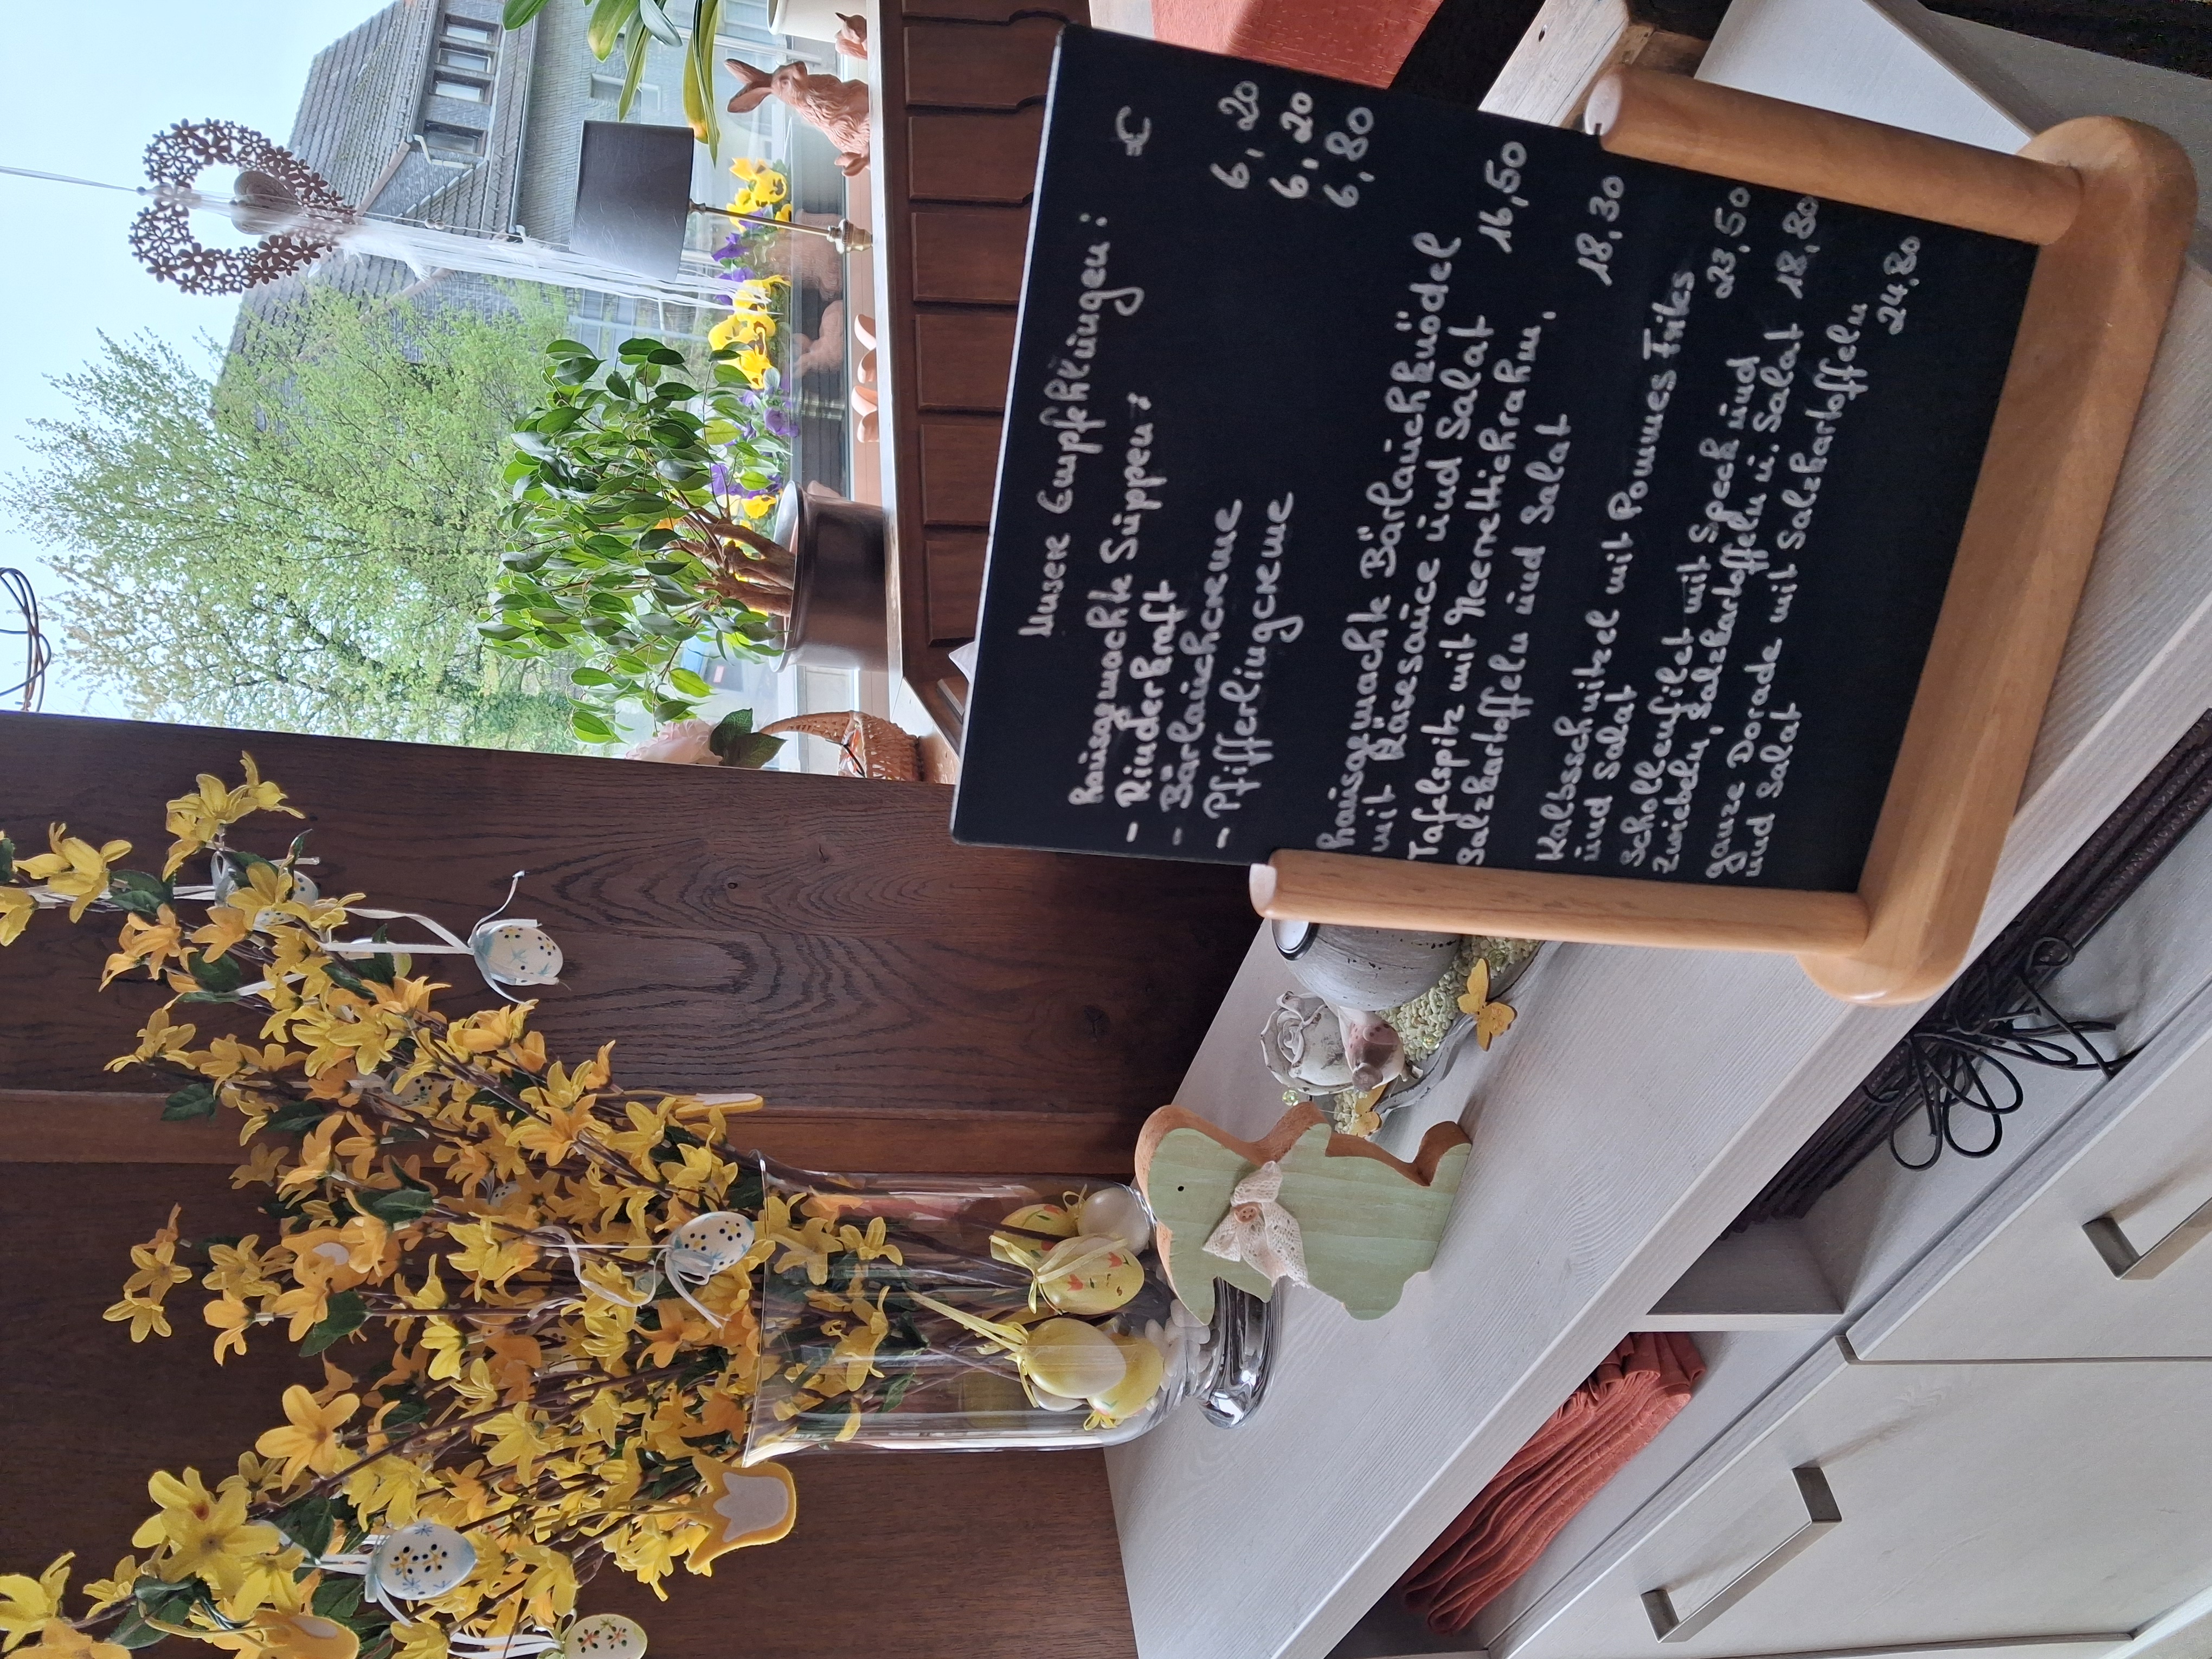 Unsere Empfehlungen:
hausgemachte Suppen: €
- Rinderkraft 6,20
- Bärlauchcreme 6,20
- Pfifferlingcreme 6,80
hausgemachte Bärlauchknödel
mit Käsesauce und Salat 16,50
Tafelspitz mit Meerrettichrahm,
Salzkartoffeln und Salat 18,30
Kalbsschnitzel mit Pommes Frites
und Salat 23,50
Schollenfilet mit Speck und
Zwiebeln, Salzkartoffeln u. Salat 18,80
ganze Dorade mit Salzkartoffeln
und Salat 24,80